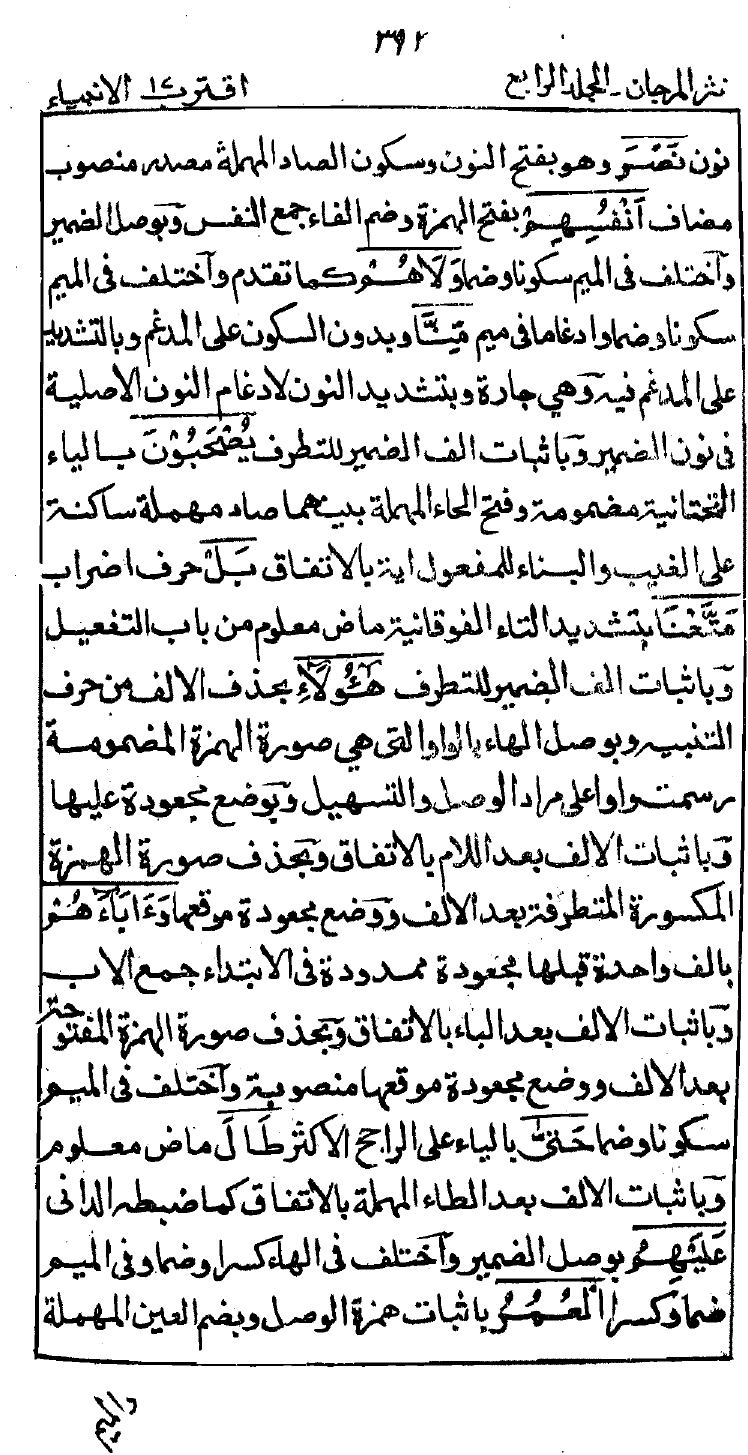 ٣٩٢
نثر المرجان - المجلد الرابع
اقترب ١٧ الانبياء
نون نَصْرَ وهو بفتح النون وسكون الصاد المهملة مصدر منصوب
مضاف اَنْفُسِهِمْ بفتح الهمزة وضم الفاء جمع النفس وبوصل الضمير
واختلف فى الميم سكونا وضما وَلَاهُمْ كما تقدم واختلف فى الميم
سكونا وضما وادغاما فى ميم مِنَّا وبدون السكون على المدغم وبالتشديد
على المدغم فيه وهي جارة وبتشديد النون لادغام النون الاصلية
فى نون الضمير وباثبات الف الضمير للتطرف يُصْحَبُوْنَ بالياء
التحتانية مضمومة وفتح الحاء المهملة بينهما صاد مهملة ساكنة
على الغيب والبناء للمفعول اية بالاتفاق بَلْ حرف اضراب
مَتَّعْنَا بتشديد التاء الفوقانية ماض معلوم من باب التفعيل
وباثبات الف الضمير للتطرف هٰٓؤُلَآءِ بحذف الالف من حرف
التنبيه وبوصل الهاء بالواو التى هي صورة الهمزة المضمومة
رسمت واوا على مراد الوصل والتسهيل وبوضع مجعودة عليها
وباثبات الالف بعد اللام بالاتفاق وبحذف صورة الهمزة
المكسورة المتطرفة بعد الالف ووضع مجعودة موقعها وَءَابَآءَهُمْ
بالف واحدة قبلها مجعودة ممدودة فى الابتداء جمع الاب
وباثبات الالف بعد الباء بالاتفاق وبحذف صورة الهمزة المفتوحة
بعد الالف ووضع مجعودة موقعها منصوبة واختلف فى الميم
سكونا وضما حَتّٰى بالياء على الراجح الاكثر طَالَ ماض معلوم
وباثبات الالف بعد الطاء المهملة بالاتفاق كما ضبطه الدانى
عَلَيْهِمُ بوصل الضمير واختلف فى الهاء كسرا وضما وفى الميم
ضما وكسرا الْعُمُرُ باثبات همزة الوصل وبضم العين المهملة
والميم